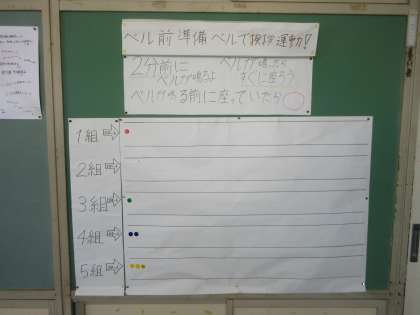 ベル前準備 ベルで挨拶運動!
2分前に ベルが鳴ったら
ベルが鳴るよ すぐに座ろう
ベルが鳴る前に座っていたら
1組
2組
3組
4組
5組